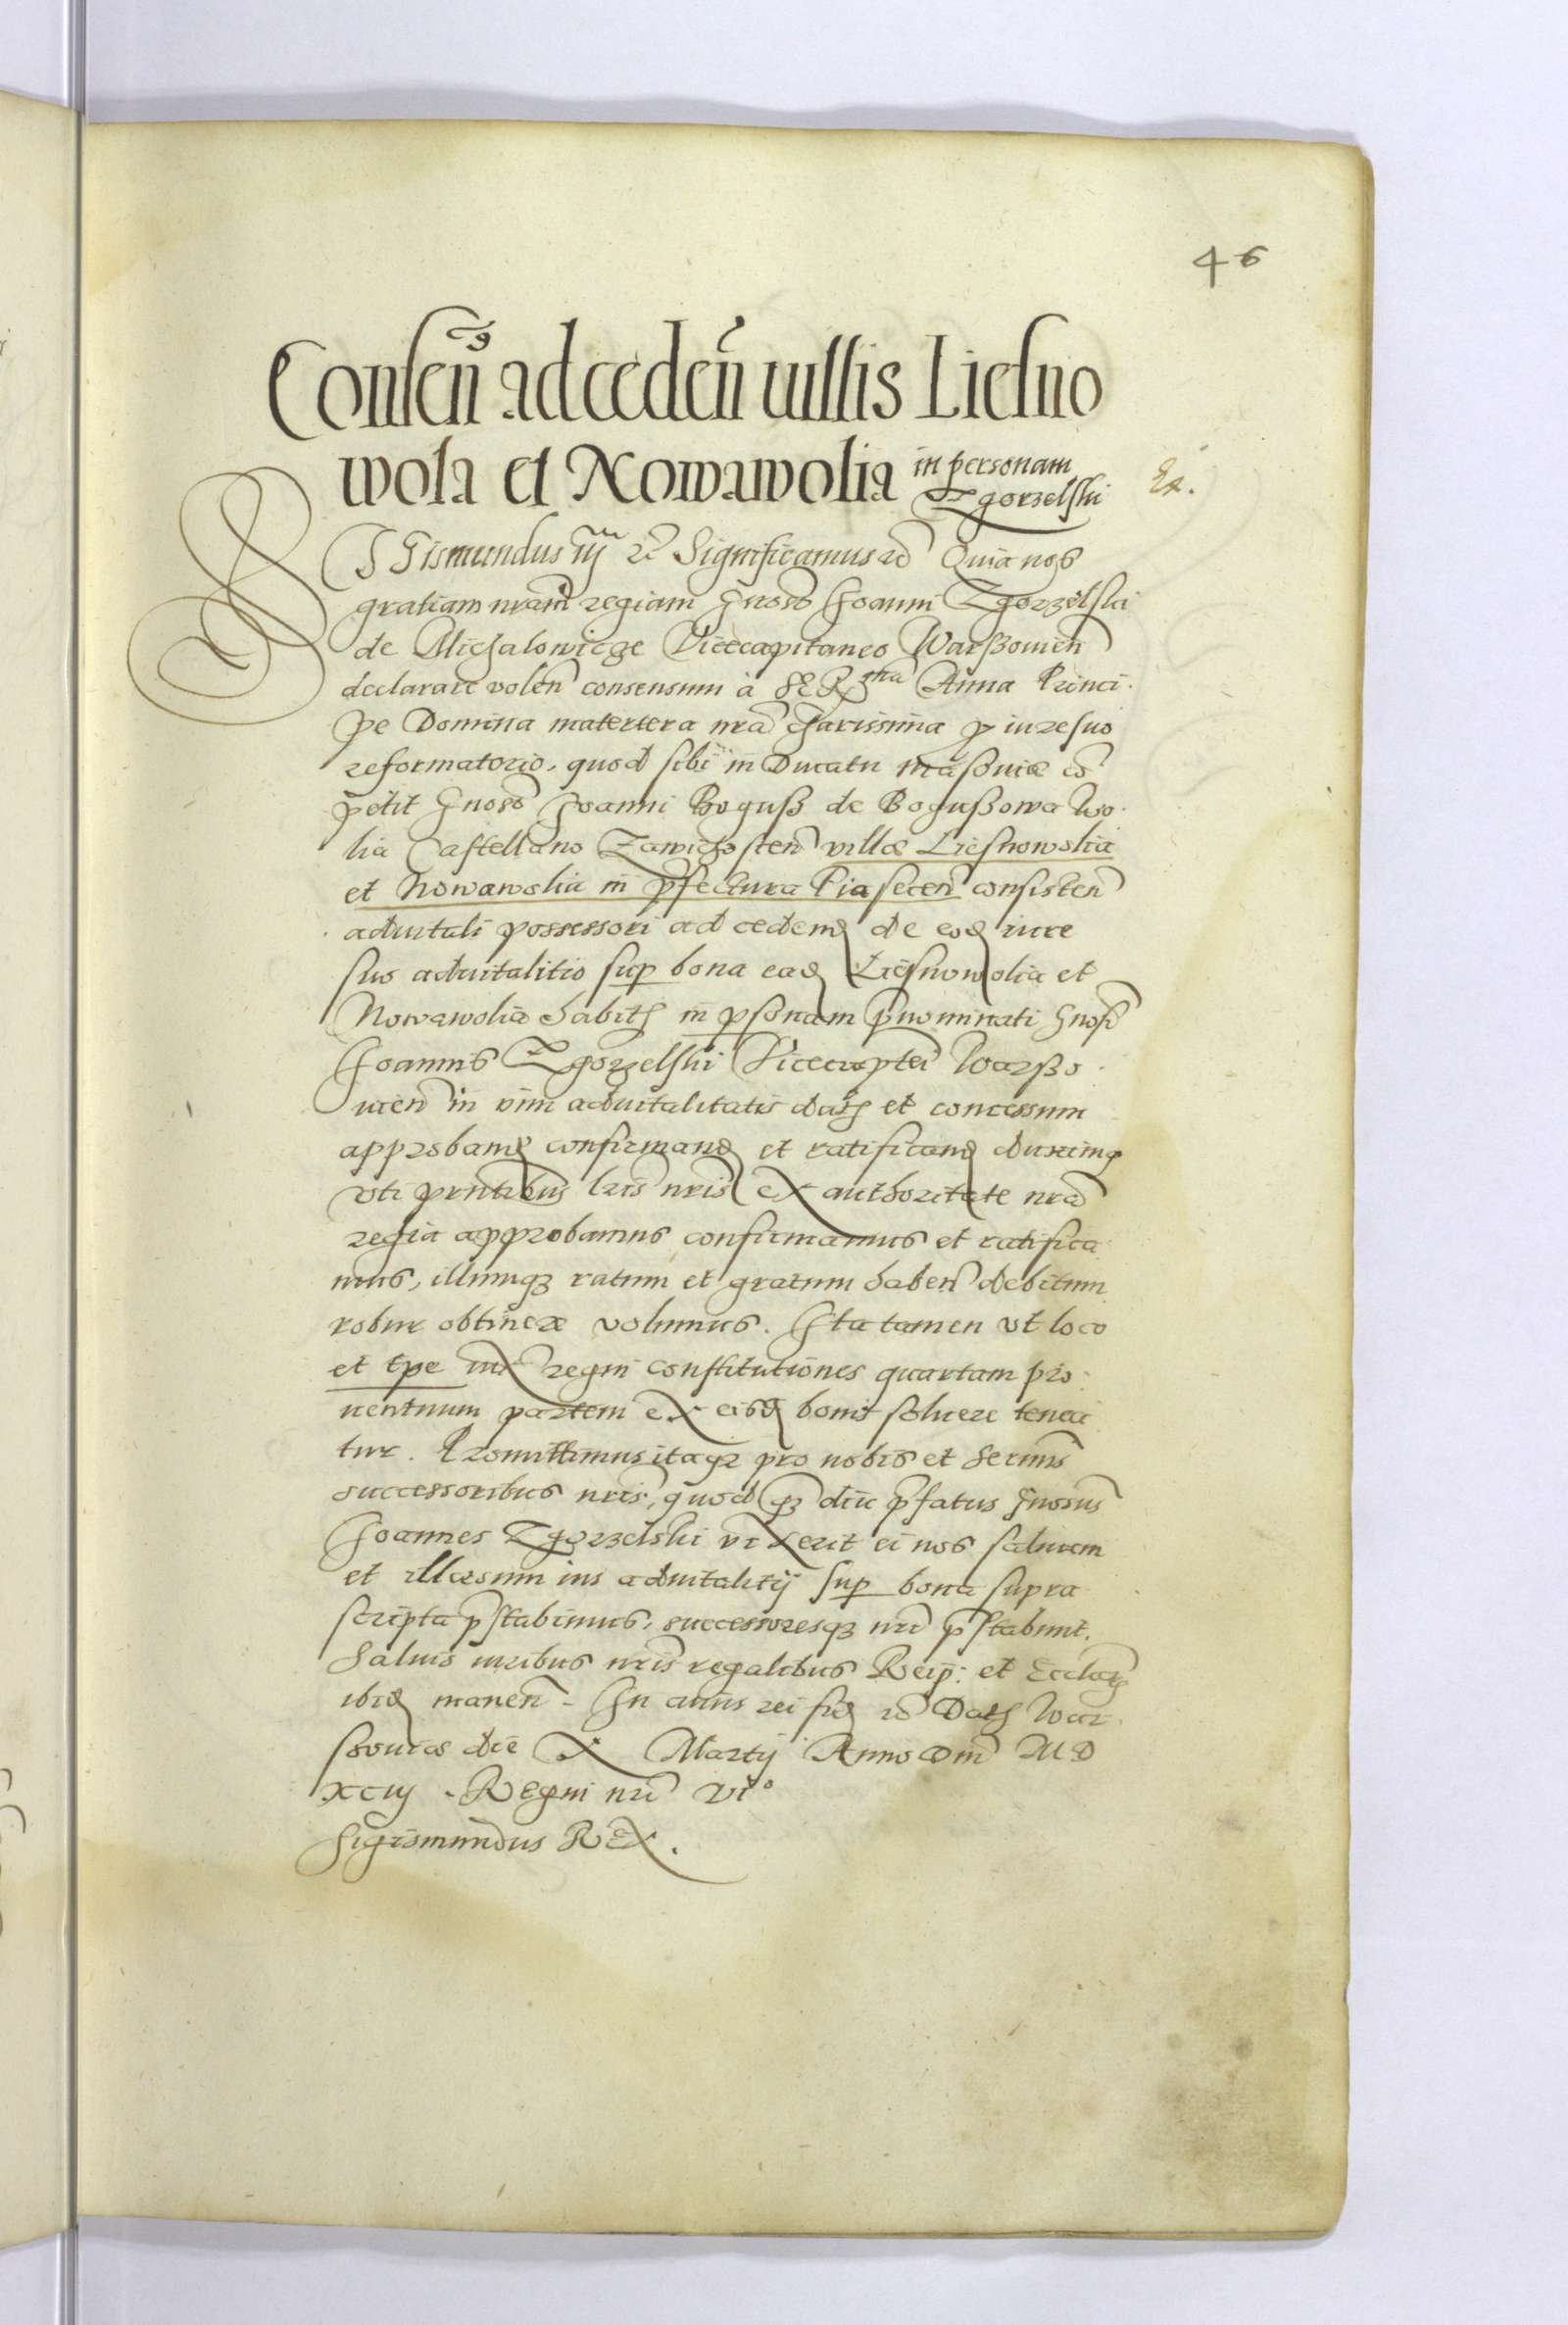 46
Consen̄ ad cedeñ villis Liesno
wola et Nowawolia in personam
Zgorzelski
Ex.
SIGismundus iij etc̃ Significamus etc̃ Quia nos
gratiam nr̃am regiam Gnoso Joanni Zgorzelski
de Michalowicze Vicecapitaneo Warßouien̄
declarare volen̄ consensum à SERma Anna Princi
pe Domina matertera nr̃a charissima ꝓ iure suo
reformatorio, quod sibi in Ducatu Masouiæ cō
petit Gnoso Joanni Boguß de Bogußowa Wo
lia Castellano Zawichosten̄ villæ Liesnowolia
et Nowawolia in p̄fectura Piasecen̄ consisten̄
aduitali possessori ad cedend̄ de eod̄ iure
suo aduitalitio sup̱ bona ead̄ Liesnowolia et
Nowawolia habitꝝ in ꝑsonam p̄nominati Gnosi
Joannis Zgorzelski Vicecaptei Warßo
uien̄ in vim aduitalitatis datꝝ et concessum
approband̄ confirmand̄ et ratificand̄ duximꝰ
vti pn̄tibus lr̃is nr̃is ex authoritate nr̃a
regia approbamus confirmamus et ratifica
mus, illumqꝫ ratum et gratum haben̄ debitum
robur obtinere volumus. Ita tamen vt loco
et tp̄e iux̄ regni constitutiones quartam pro
uentuum partem ex eisd̄ bonis soluere tenea
tur. Promittimus itaqꝫ pro nobis et Serm̃is
successoribus nr̃is, quod qꝫ diu p̄fatus Gnosus
Joannes Zgorzelski vixerit ei nos saluum
et illæsum ius aduitalitij sup̱ bona supra
scripta p̄stabimus, successoresqꝫ nr̃i p̄stabunt.
Saluis iuribus nr̃is regalibus Reip: et Ecclarꝝ
ibid̄ manen̄. In cuius rei fid̄ etc̃ Datꝝ War
souiæ die X Martij Anno Dn̄i MD
XCiij. Regni nr̃i VIo
Sigismundus REX.